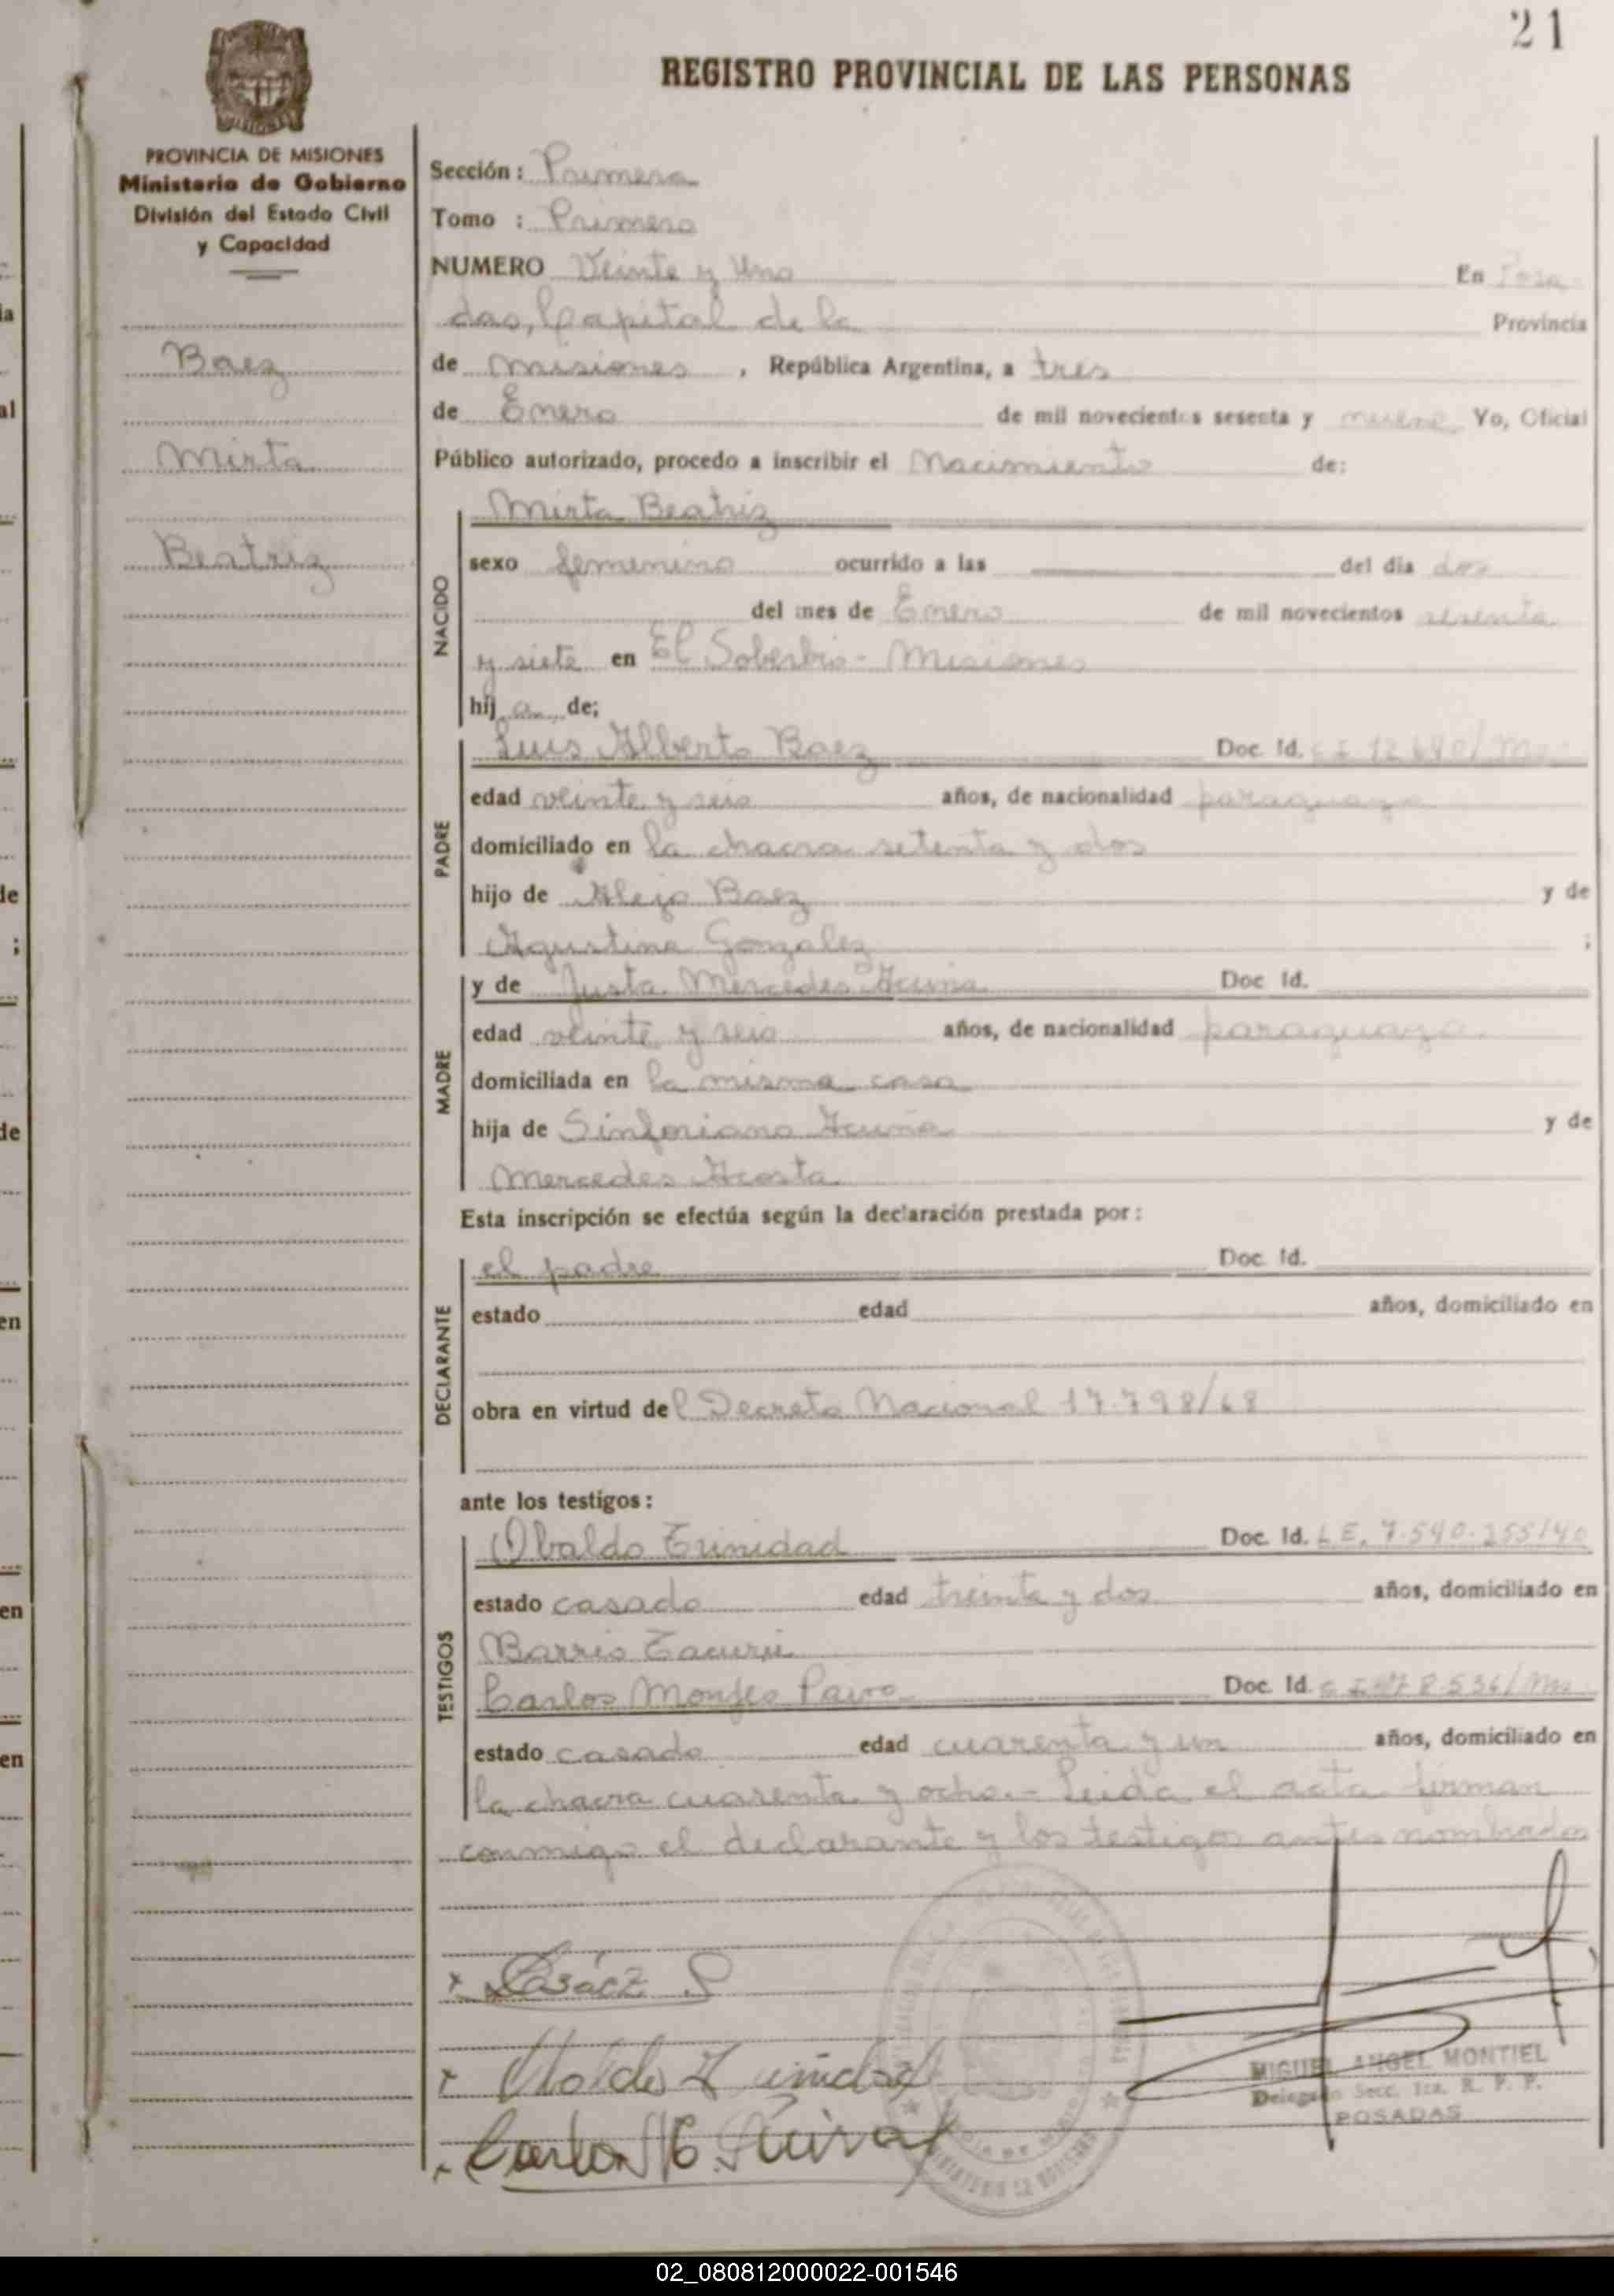 21
REGISTRO PROVINCIAL DE LAS PERSONAS
PROVINCIA DE MISIONES
Ministerio de Gobierno
División del Estado Civil
y Capacidad
Baez
Mirta
Beatriz
Sección: Primera
Tomo : Primero
NUMERO Veinte y Uno En Posa
das, Capital de la Provincia
de Misiones, República Argentina, a tres
de Enero de mil novecientos sesenta y nueve Yo, Oficial
Público autorizado, procedo a inscribir el Nacimiento de:
NACIDO
Mirta Beatriz
sexo femenino ocurrido a las del día dos
del mes de Enero de mil novecientos sesenta
y siete en El Soberbio - Misiones
hija de;
PADRE
Luis Alberto Baez Doc. Id. C I 12.640/M
edad veinte y seis años, de nacionalidad paraguaya
domiciliado en la chacra setenta y dos
hijo de Alejo Baez y de
Agustina Gonzalez ;
MADRE
y de Justa Mercedes Acuña Doc Id.
edad veinte y seis años, de nacionalidad paraguaya
domiciliada en la misma casa
hija de Sinforiano Acuña y de
Mercedes Acosta
Esta inscripción se efectúa según la declaración prestada por:
DECLARANTE
el padre Doc. Id.
estado edad años, domiciliado en
obra en virtud del Decreto Nacional 17.798/68
ante los testigos:
TESTIGOS
Obaldo Trinidad Doc. Id. L E. 7.540.255/40
estado casado edad treinta y dos años, domiciliado en
Barrio Tacurú
Carlos Doc. Id.
estado casado edad cuarenta y un años, domiciliado en
la chacra cuarenta y ocho.- Leida el acta firman
conmigo el declarante y los testigos antes nombrados
MIGUEL ANGEL MONTIEL
Delegado Secc. 1ra. R. P. P.
POSADAS
02_080812000022-001546